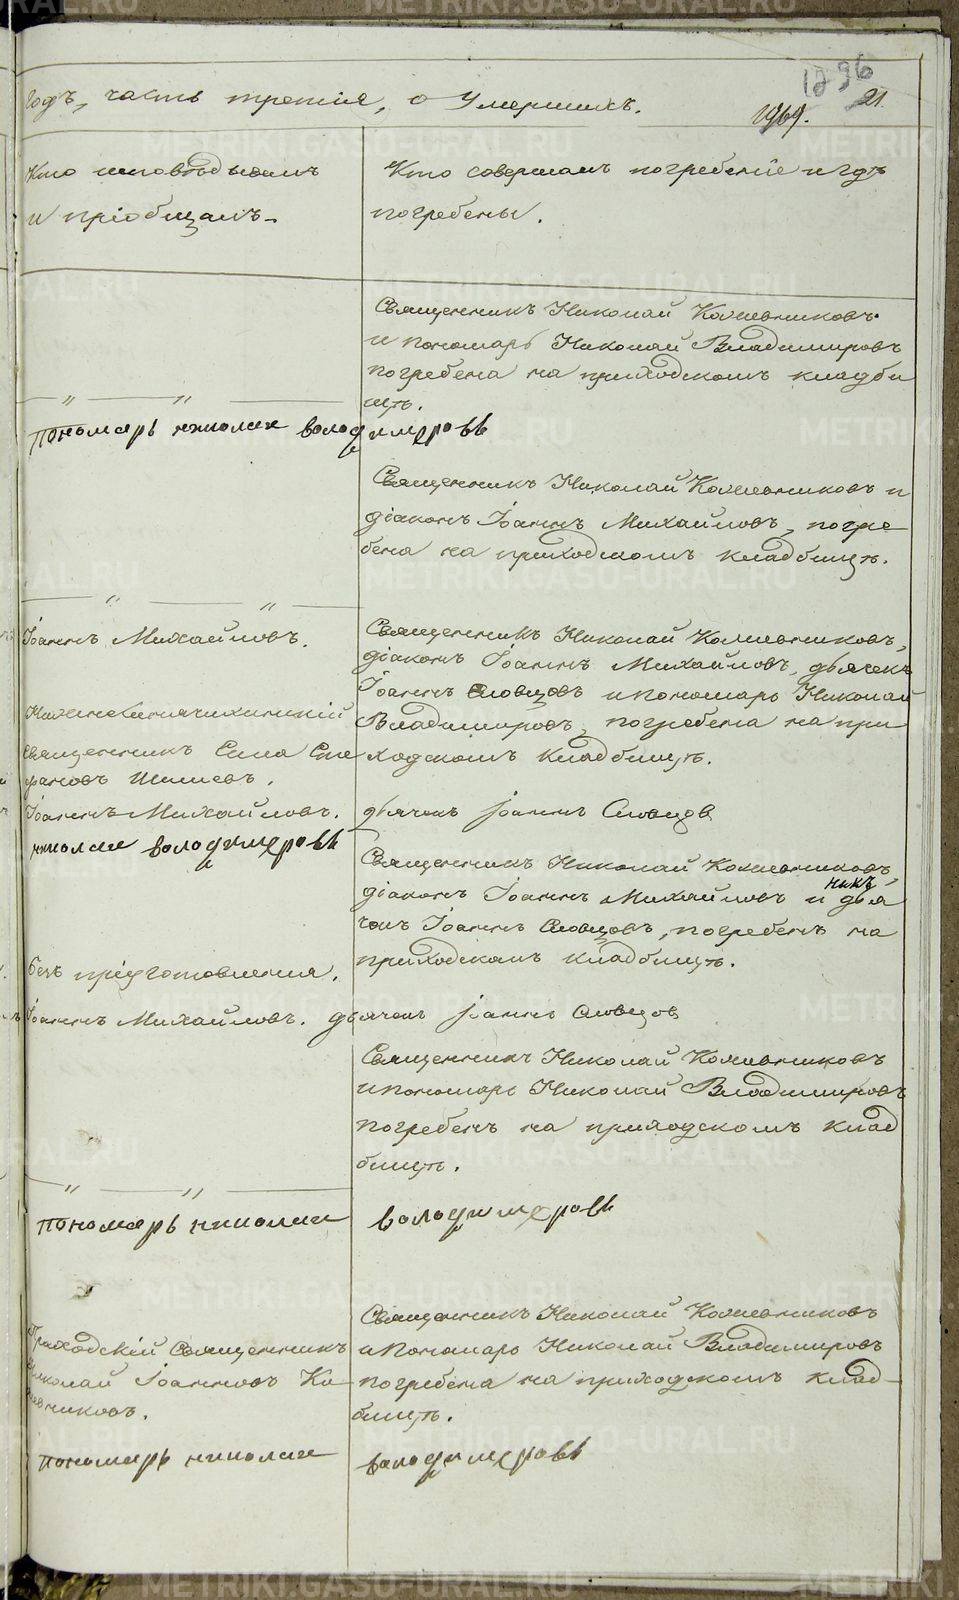 годъ, часть третія, о Умершихъ.
1296
1969. 21.
Кто исповѣдывалъ
и пріобщалъ.
Кто совершалъ погребеніе и гдѣ
погребены.
Священникъ Николай Кожевниковъ
и пономарь Николай Владимировъ
погребена на приходскомъ кладби
щѣ.
пономарь николаи володимеровь
Священникъ Николай Кожевниковъ и
діаконъ Іоаннъ Михайловъ, погре
бена на приходскомъ кладбищѣ.
Іоаннъ Михайловъ.
Священникъ Николай Кожевниковъ,
діаконъ Іоаннъ Михайловъ, дьячекъ
Іоаннъ Словцовъ и пономарь Николай
Владимировъ, погребена на при
ходскомъ кладбищѣ.
священникъ Сила Сте
фановъ Шишевъ.
Іоаннъ Михайловъ.
дьячекъ Іоаннъ Словцов
николаи володимеровь
Священникъ Николай Кожевниковъ,
діаконъ Іоаннъ Михайловъ и дья
чекъ Іоаннъ Словцовъ, погребенъ на
приходскомъ кладбищѣ.
Безъ предготовления.
Іоаннъ Михайловъ. дьячекъ Іоаннъ Словцов
Священникъ Николай Кожевниковъ
и пономарь Николай Владимировъ
погребенъ на приходскомъ клад
бищѣ.
пономарь николаи володимеровь
Приходскій Священникъ
Николай Іоанновъ Ко
жевниковъ.
Священникъ Николай Кожевниковъ
и пономарь Николай Владимировъ
погребена на приходскомъ клад-
бищѣ.
пономарь николаи володимеровь
METRIKI.GASO-URAL.RU